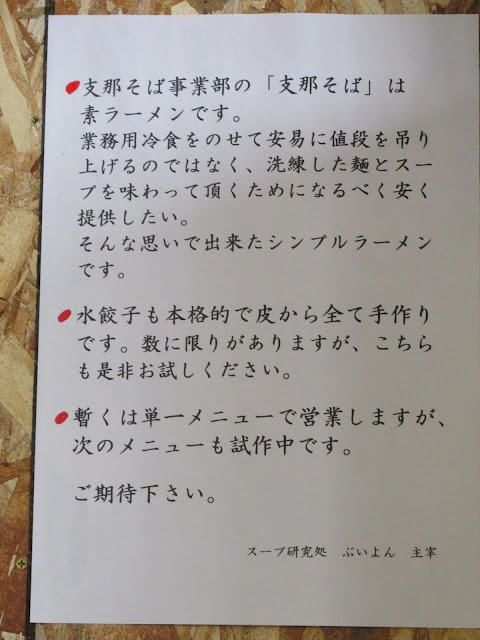 支那そば事業部の「支那そば」は
素ラーメンです。
業務用冷食をのせて安易に値段を吊り
上げるのではなく、洗練した麺とスー
プを味わって頂くためになるべく安く
提供したい。
そんな思いで出来たシンプルラーメン
です。
水餃子も本格的で皮から全て手作り
です。数に限りがありますが、こちら
も是非お試しください。
暫くは単一メニューで営業しますが、
次のメニューも試作中です。
ご期待下さい。
スープ研究処 ぶいよん 主宰